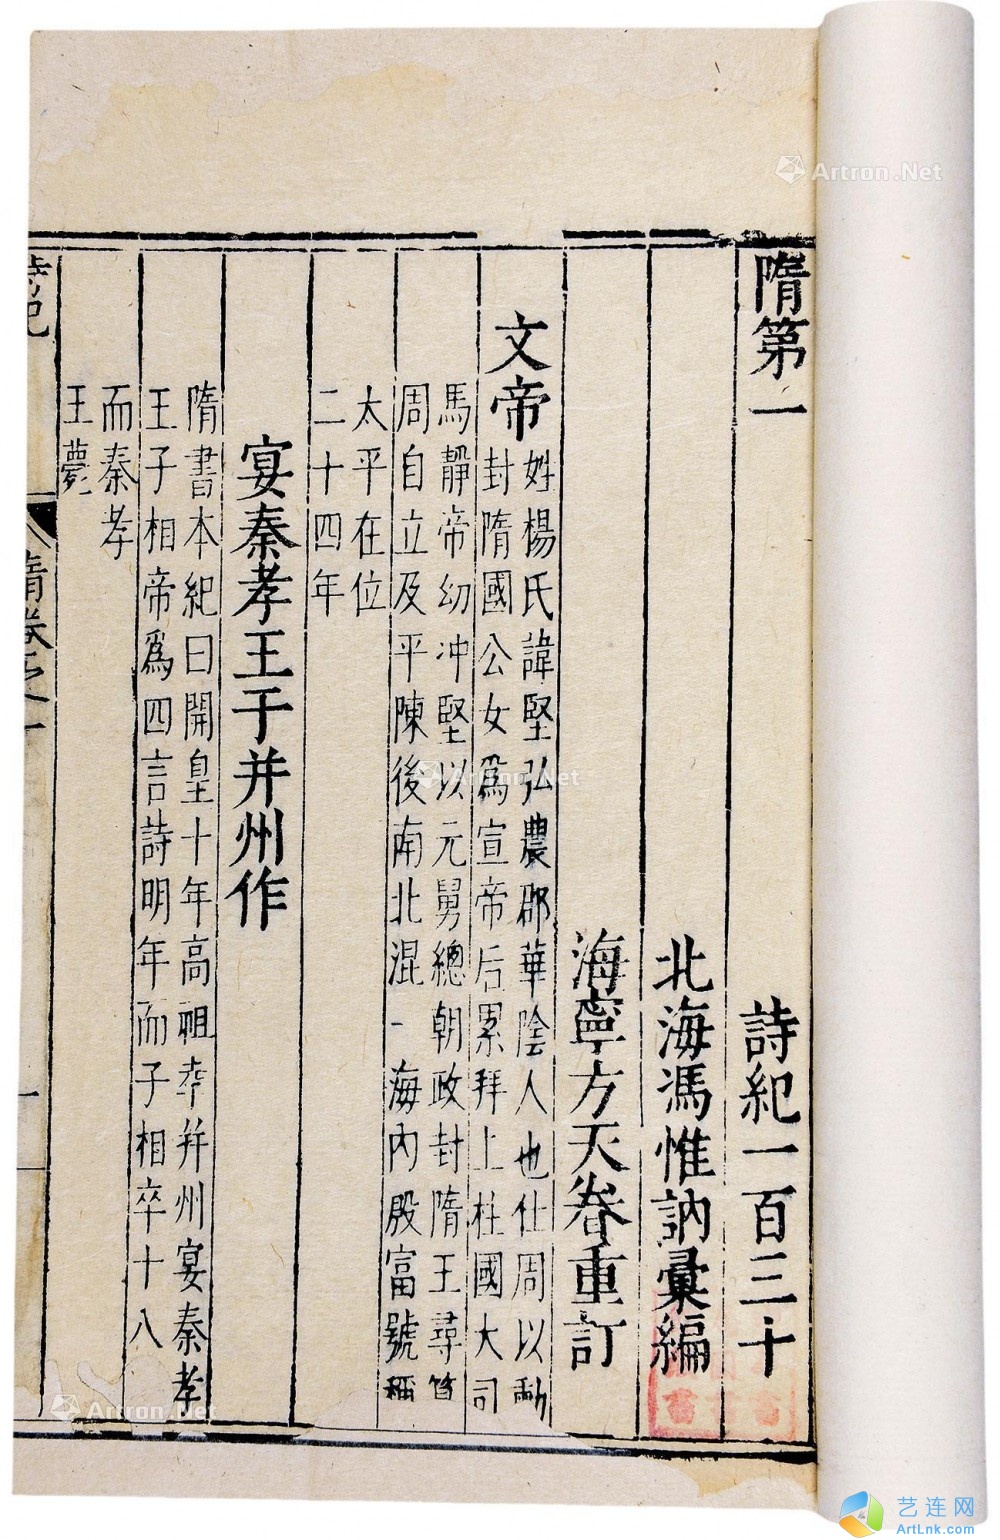 隋第一 詩紀一百三十
北海馮惟訥彙編
海寧方天眷重訂
文帝
姓楊氏諱堅弘農郡華陰人也仕周以勳
封隋國公女為宣帝后累拜上柱國大司
馬靜帝幼冲堅以元舅總朝政封隋王尋簒
周自立及平陳後南北混一海內殷富號稱
太平在位
二十四年
宴秦孝王于并州作
隋書本紀曰開皇十年高祖幸并州宴秦孝
王子相帝為四言詩明年而子相卒十八
而秦孝
王薨
詩紀
隋卷之一
一
Artron.Net
Artron.Net
Artron.Net
艺连网
ArtLnk.com